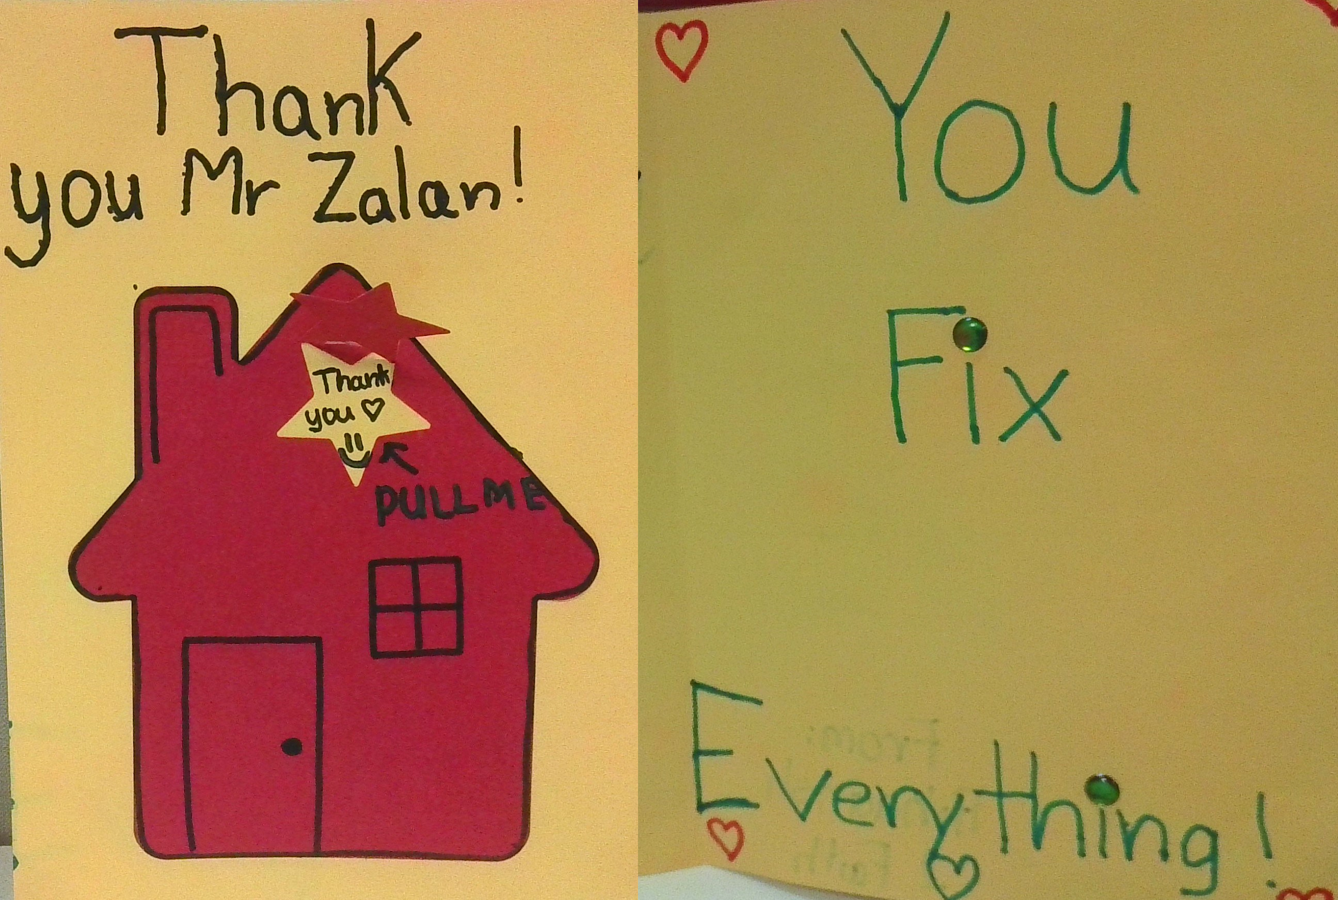 Thank
you Mr Zalan!
Thank
you ♡
PULL ME
You
Fix
Everything!
From:
Faith